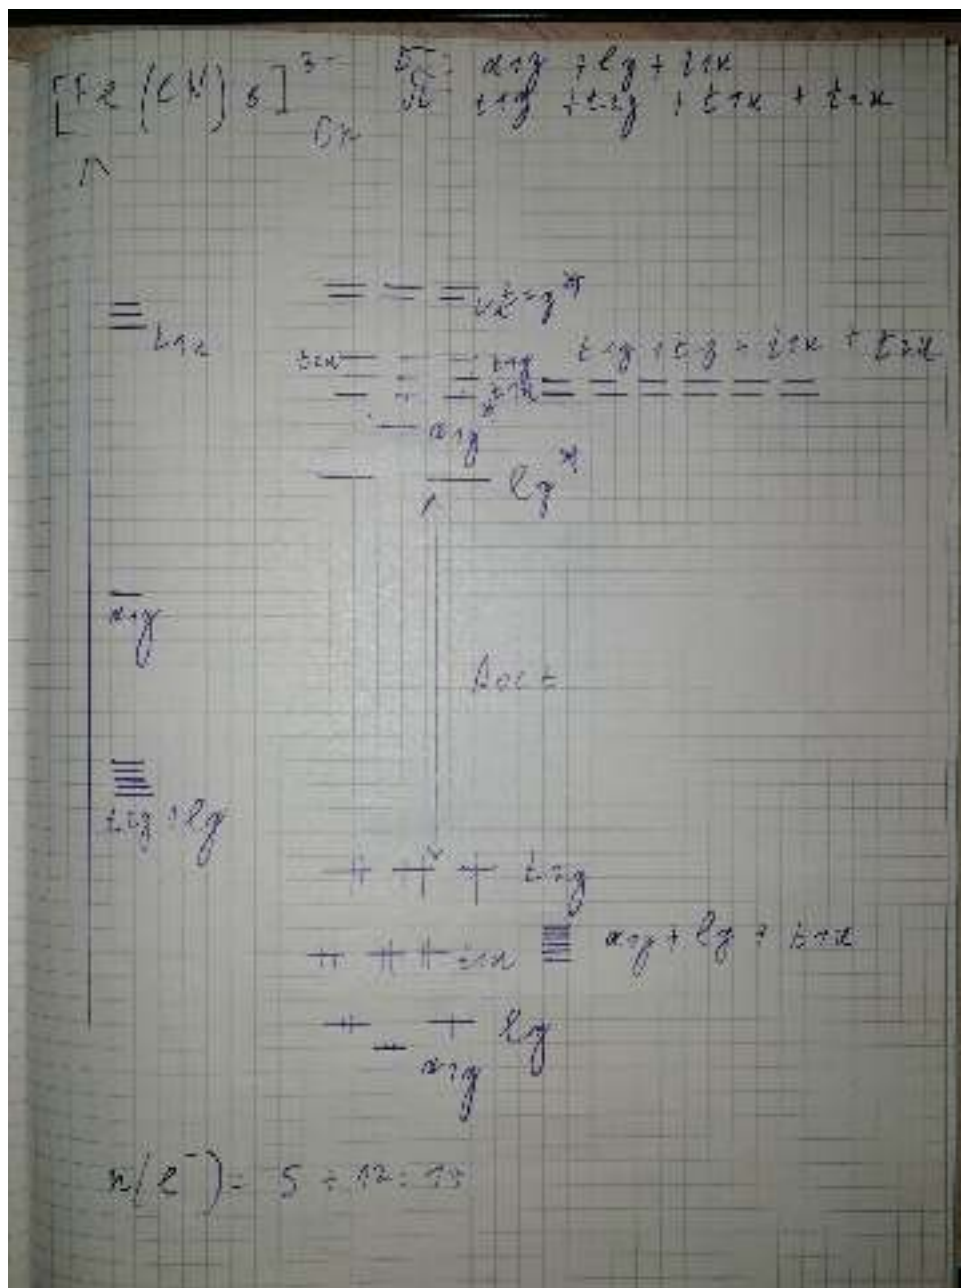 [Fe(CN)6]3-
Oh
σ: a1g + eg + t1u
π: t1g + t2g + t1u + t2u
t2g*
t1u
t2u
t1g
t1u
t1g + t2g + t1u + t2u
a1g*
eg*
a1g
Δoct
t2g + eg
t2g
t1u
a1g + eg + t1u
eg
a1g
n(e-) = 5 + 12 = 17